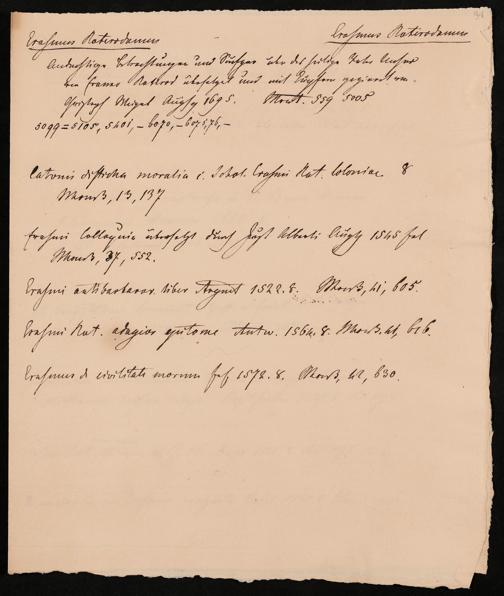 Erasmus Roterodamus Erasmus Roterodamus
Andächtige Betrachtungen und über das heilige Vater Unser
von Erasmo Roterod übersetzet und mit Kupffern gezieret von
Christoph Weigel Augsp 1695. 559 5005
5099 = 5105, 5401, – 6070, – 6075,76, –
Catonis disticha moralia c. Schol. Erasmi Rot. Coloniae 8
13, 137
Erasmi Colloquia übersetzt durch Just Alberti Augsp 1545 fol
37, 552.
Erasmi antibarbaror. liber August 1522. 8. 41, 605.
Erasmi Rot. adagior epitome Antw. 1564. 8. 41, 616.
Erasmus de civilitate morum 1572. 8. 42, 630.